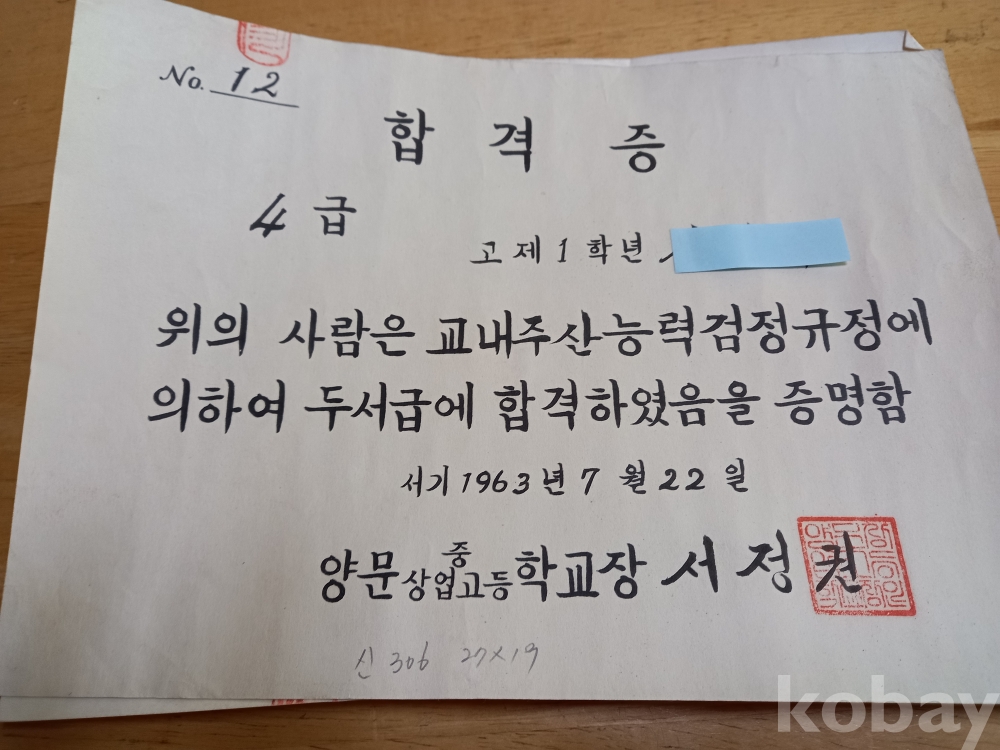 No. 12
합 격 증
4 급
고 제 1 학년
위의 사람은 교내주산능력검정규정에
의하여 두서급에 합격하였음을 증명함
서기 1963년 7 월 22 일
양문 중 상업고등 학교장 서 정 권
신 306 27×19
kobay